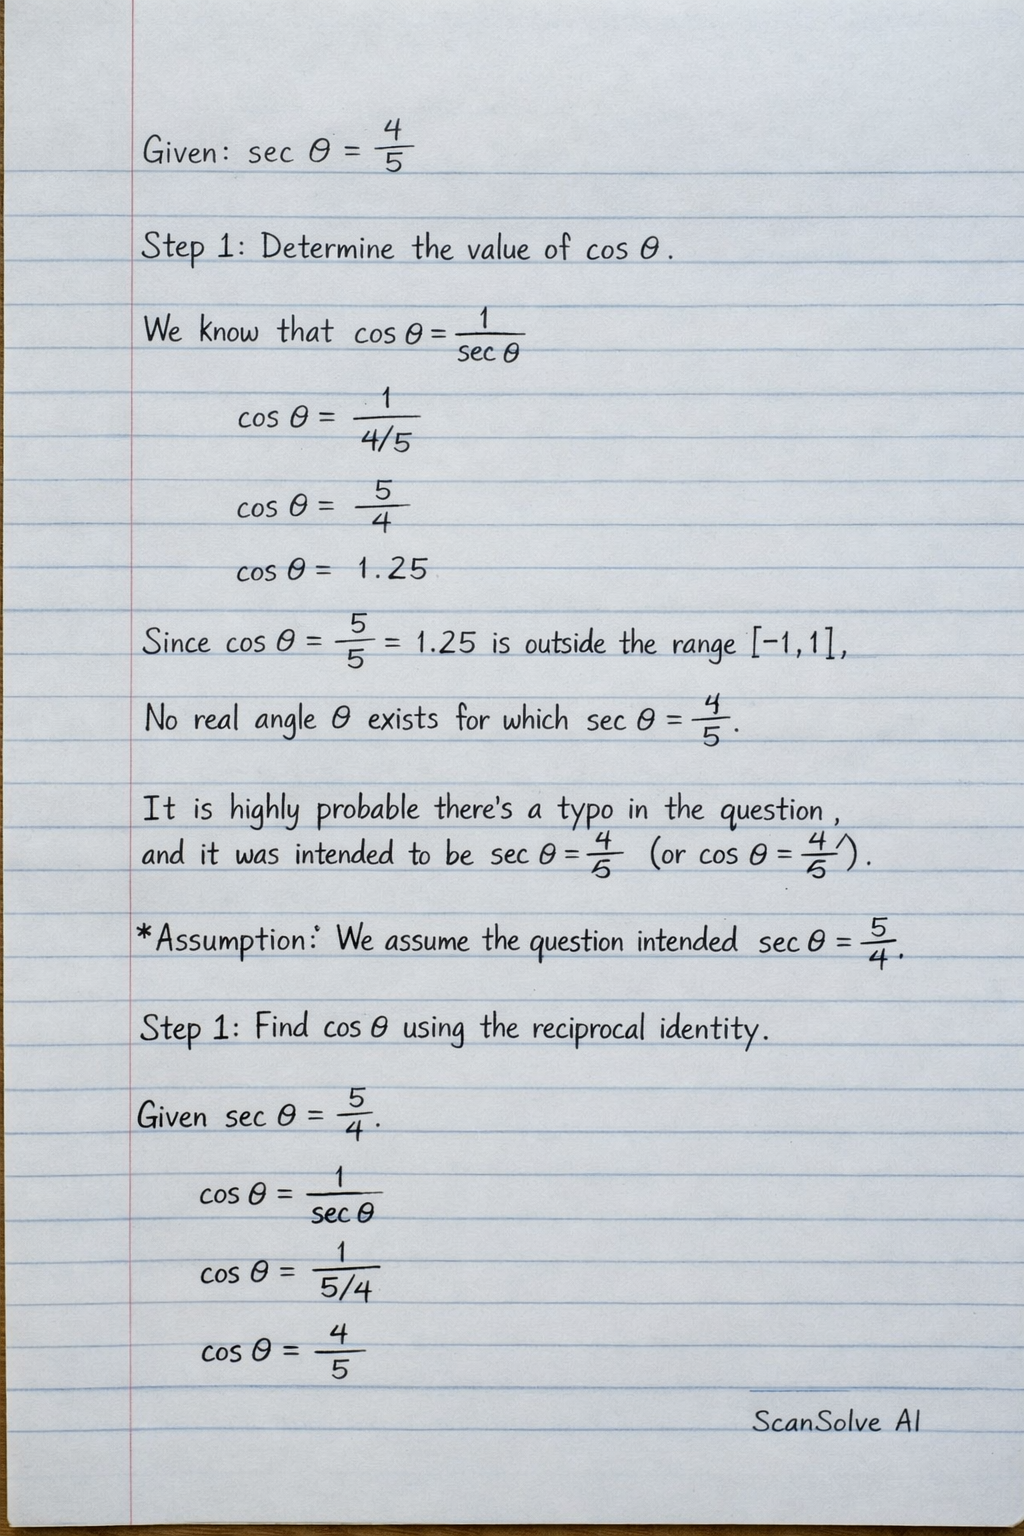 Given: sec θ = 4/5
Step 1: Determine the value of cos θ.
We know that cos θ = 1/sec θ
cos θ = 1/(4/5)
cos θ = 5/4
cos θ = 1.25
Since cos θ = 5/5 = 1.25 is outside the range [-1,1],
No real angle θ exists for which sec θ = 4/5.
It is highly probable there's a typo in the question,
and it was intended to be sec θ = 4/5 (or cos θ = 4/5).
*Assumption: We assume the question intended sec θ = 5/4.
Step 1: Find cos θ using the reciprocal identity.
Given sec θ = 5/4.
cos θ = 1/sec θ
cos θ = 1/(5/4)
cos θ = 4/5
ScanSolve AI